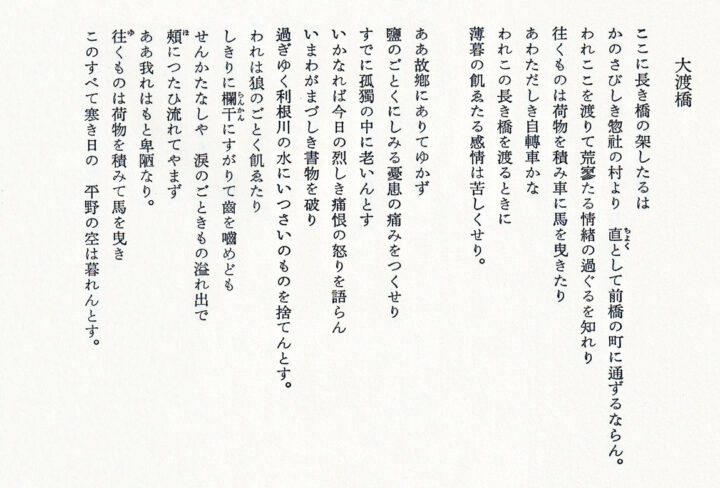 大渡橋
ここに長き橋の架したるは
かのさびしき惣社の村より　直として前橋の町に通ずるならん。
われここを渡りて荒寥たる情緒の過ぐるを知れり
往くものは荷物を積み車に馬を曳きたり
あわただしき自轉車かな
われこの長き橋を渡るときに
薄暮の飢ゑたる感情は苦しくせり。
ああ故郷にありてゆかず
鹽のごとくにしみる憂患の痛みをつくせり
すでに孤獨の中に老いんとす
いかなれば今日の烈しき痛恨の怒りを語らん
いまわがまづしき書物を破り
過ぎゆく利根川の水にいつさいのものを捨てんとす。
われは狼のごとく飢ゑたり
しきりに欄干にすがりて齒を嚙めども
せんかたなしや　涙のごときもの溢れ出で
頰につたひ流れてやまず
ああ我れはもと卑陋なり。
往くものは荷物を積みて馬を曳き
このすべて寒き日の　平野の空は暮れんとす。